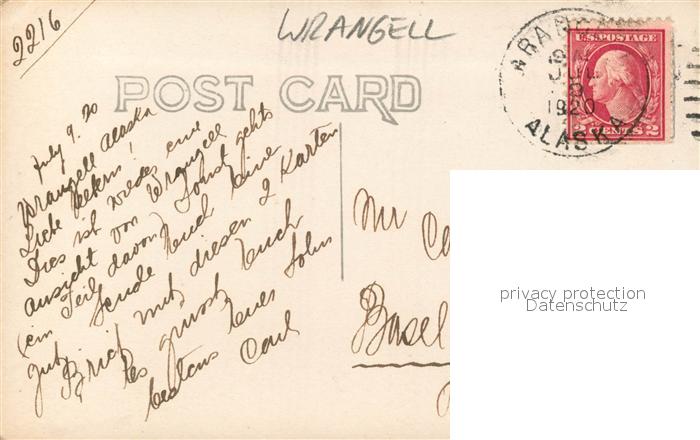 2216
WRANGELL
POST CARD
WRANGELL
JUL
9
1920
ALASKA
U.S. POSTAGE
2 CENTS 2
July 9. 20
Wrangell Alaska
Liebe Eltern!
Dies ist wieder eine
ansicht von Wrangell
(ein Teil davon) Sonst gehts
gut. Sende Euch eine
Brief mit diesen 2 Karten
Es grüsst Euch
bestens Euer Sohn
Carl
Mr Ca
Basel
privacy protection
Datenschutz